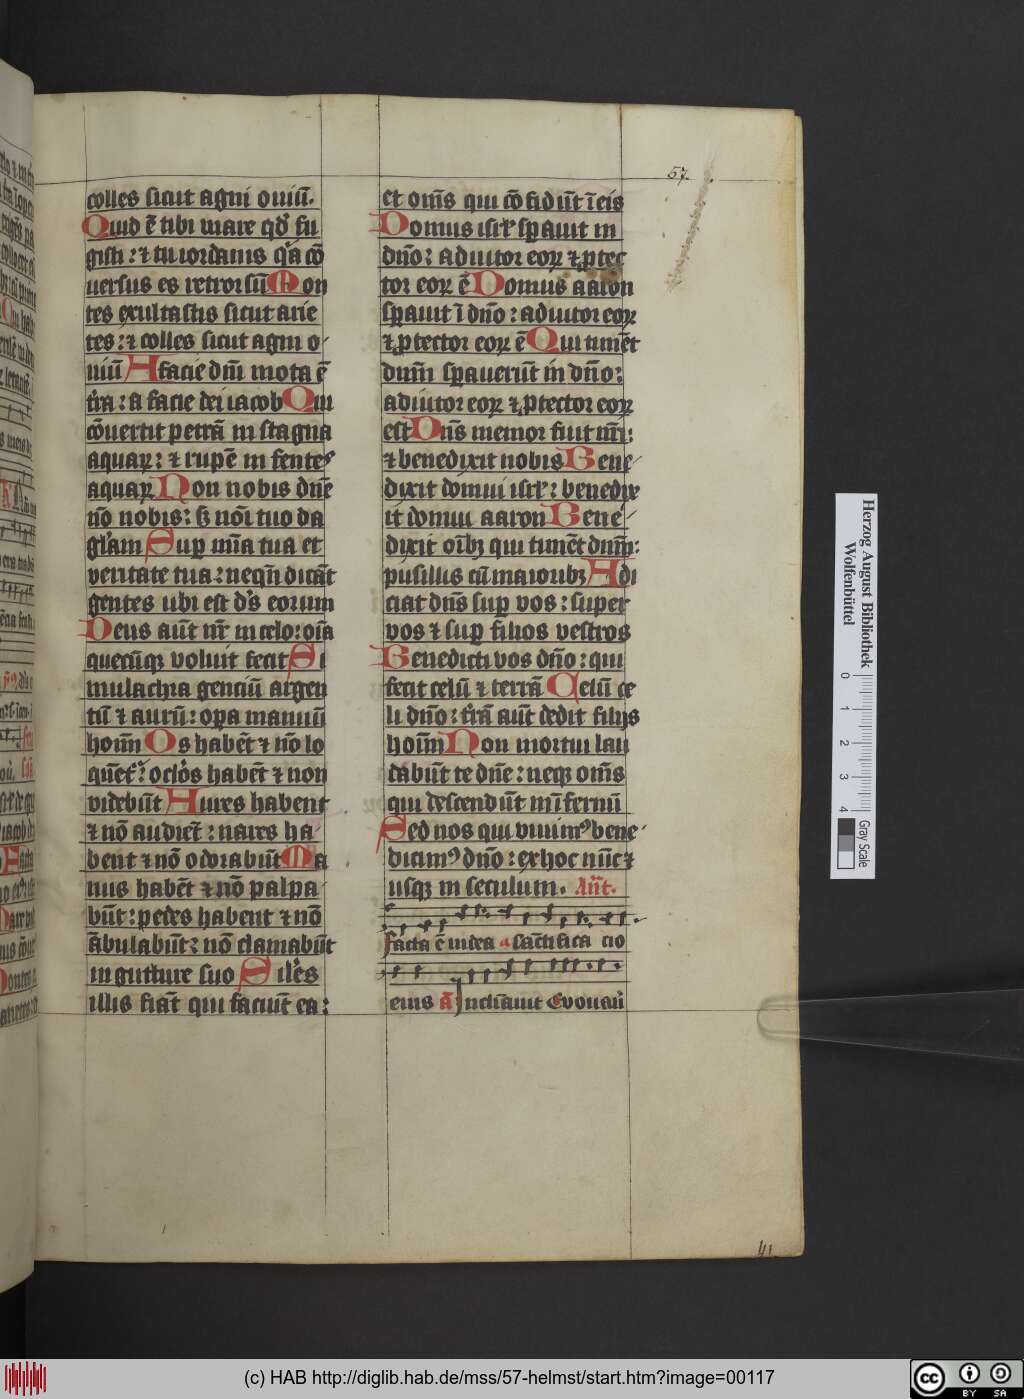 57
colles sicut agni ouiū.
Quid ē tibi mare qd' fu
gisti: ⁊ tu iordanis q'a cō
uersus es retrorsū Mon
tes exultastis sicut arie
tes: ⁊ colles sicut agni o
uiū A facie dn̄i mota ē
t'ra: a facie dei iacob Qui
cōuertit petrā in stagna
aquaꝝ: ⁊ rupē in fontes
aquaꝝ Non nobis dn̄e
nō nobis: sꝫ nōi tuo da
gl'am Suꝑ mīa tua et
veritate tua: neqn̄ dicāt
gentes ubi est d's eorum
Deus aūt nr̄ in celo: oīa
quecūqꝫ voluit fecit Si
mulachra genciū argen
tū ⁊ aurū: oꝑa manuū
hoīm Os habēt ⁊ nō lo
quēt': oclōs habēt ⁊ non
videbūt Aures habent
⁊ nō audiēt: nares ha
bent ⁊ nō odorabūt Ma
nus habēt ⁊ nō palpa
būt: pedes habent ⁊ nō
ābulabūt: nō clamabūt
in gutture suo Sil'es
illis fiāt qui faciūt ea:
et om̄s qui cōfidūt ī eis
Domus isrl' sꝑauit in
dn̄o: adiutor eoꝝ ⁊ ꝓtec
tor eoꝝ ē Domus aaron
sꝑauit ī dn̄o: adiutor eoꝝ
⁊ ꝓtector eoꝝ ē Qui timēt
dn̄m sꝑauerūt in dn̄o:
adiutor eoꝝ ⁊ ꝓtector eoꝝ
est Dn̄s memor fuit nr̄i:
⁊ benedixit nobis Bene
dixit domui isrl': benedix
it domui aaron Bene
dixit oībꝫ qui timēt dn̄m:
pusillis cū maioribꝫ Adi
ciat dn̄s suꝑ vos: super
vos ⁊ suꝑ filios vestros
Benedicti vos dn̄o: qui
fecit celū ⁊ terrā Celū ce
li dn̄o: t'rā aūt dedit filijs
hoīm Non mortui lau
dabūt te dn̄e: neqꝫ om̄s
qui descendūt in īfernū
Sed nos qui viuimꝰ bene
dicimꝰ dn̄o: ex hoc nūc ⁊
usqꝫ in seculum. Ant̄.
Facta ē iudea a sāctifica cio
eius ā Inclīauit Evouaū
41
Herzog August Bibliothek
Wolfenbüttel
0 1 2 3 4
Gray Scale
(c) HAB http://diglib.hab.de/mss/57-helmst/start.htm?image=00117
cc BY SA